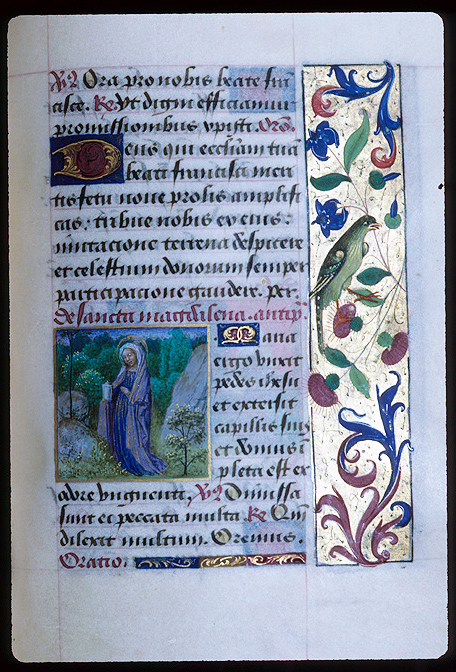 V Ora pro nobis beate fran
cisce. Re Vt digni efficiamur
promissionibus xpisti. Oro.
Deus qui eccliam tuā
beati francisci meri
tis fetu noue prolis amplifi
cas: tribue nobis ex eius
imitacione terrena despicere
et celestium donorum semper
participacione gaudere. per.
De sancta magdalena. antiph.
Maria
ergo vnxit
pedes ihesu
et extersit
capillis suis
et domus i
pleta est ex
odore vnguenti. V Dimissa
sunt ei peccata multa. Re Qm
dilexit multum. Oremus.
Oratio.